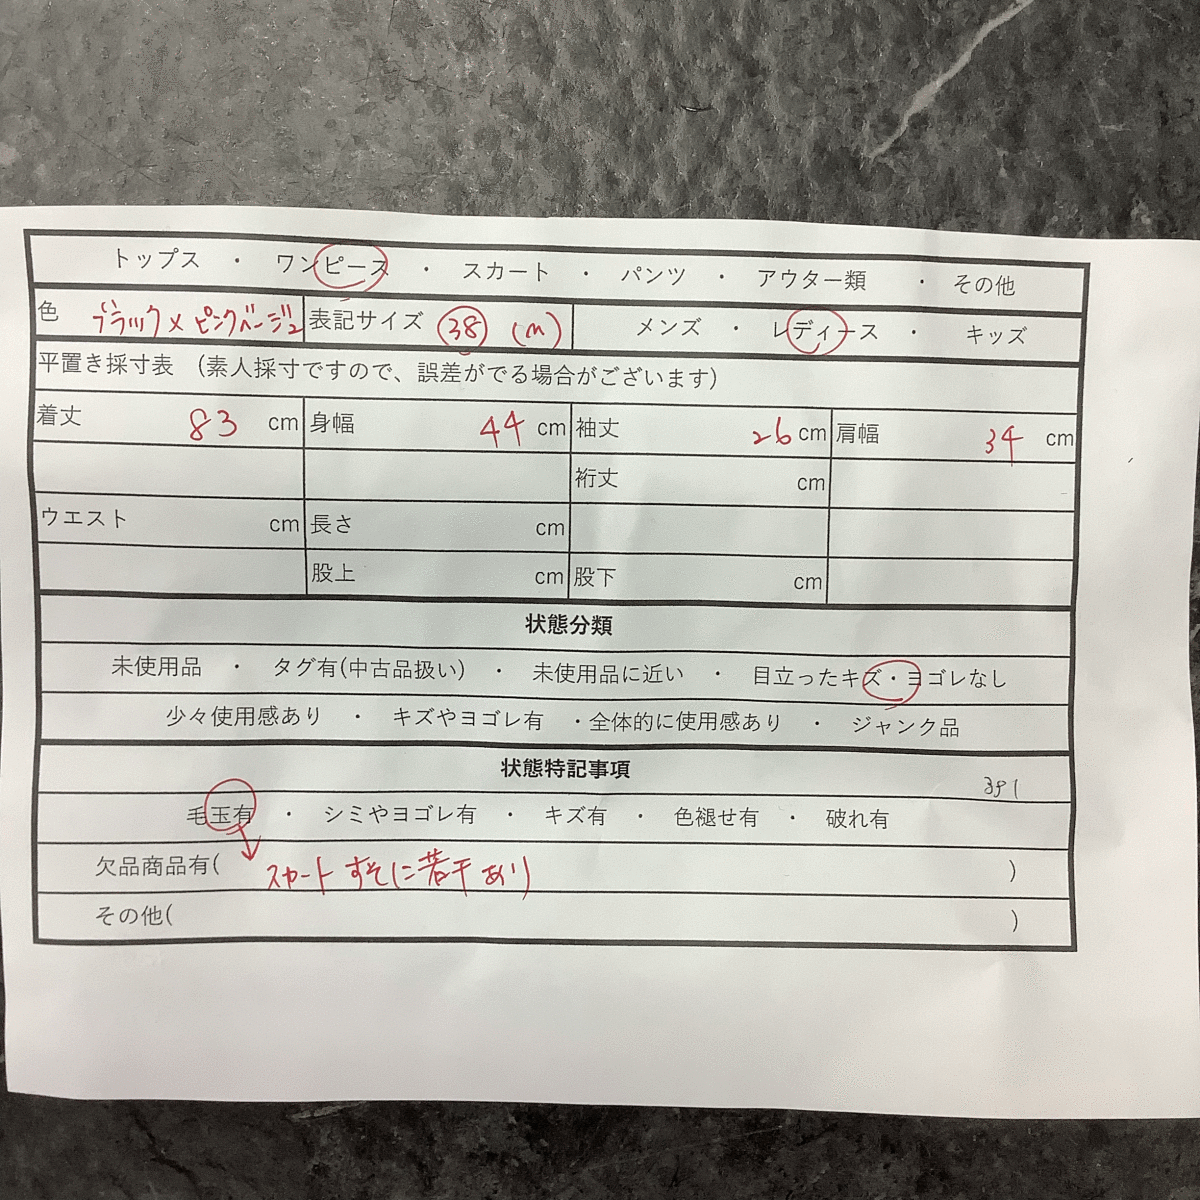 トップス ・ ワンピース ・ スカート ・ パンツ ・ アウター類 ・ その他
色 ブラック×ピンクベージュ 表記サイズ 38 (M) メンズ ・ レディース ・ キッズ
平置き採寸表 (素人採寸ですので、誤差がでる場合がございます)
着丈 83 cm 身幅 44 cm 袖丈 26 cm 肩幅 34 cm
裄丈 cm
ウエスト cm 長さ cm
股上 cm 股下 cm
状態分類
未使用品 ・ タグ有(中古品扱い) ・ 未使用品に近い ・ 目立ったキズ・ヨゴレなし
少々使用感あり ・ キズやヨゴレ有 ・全体的に使用感あり ・ ジャンク品
状態特記事項
391
毛玉有 ・ シミやヨゴレ有 ・ キズ有 ・ 色褪せ有 ・ 破れ有
欠品商品有( スカートすそに若干あり )
その他( )